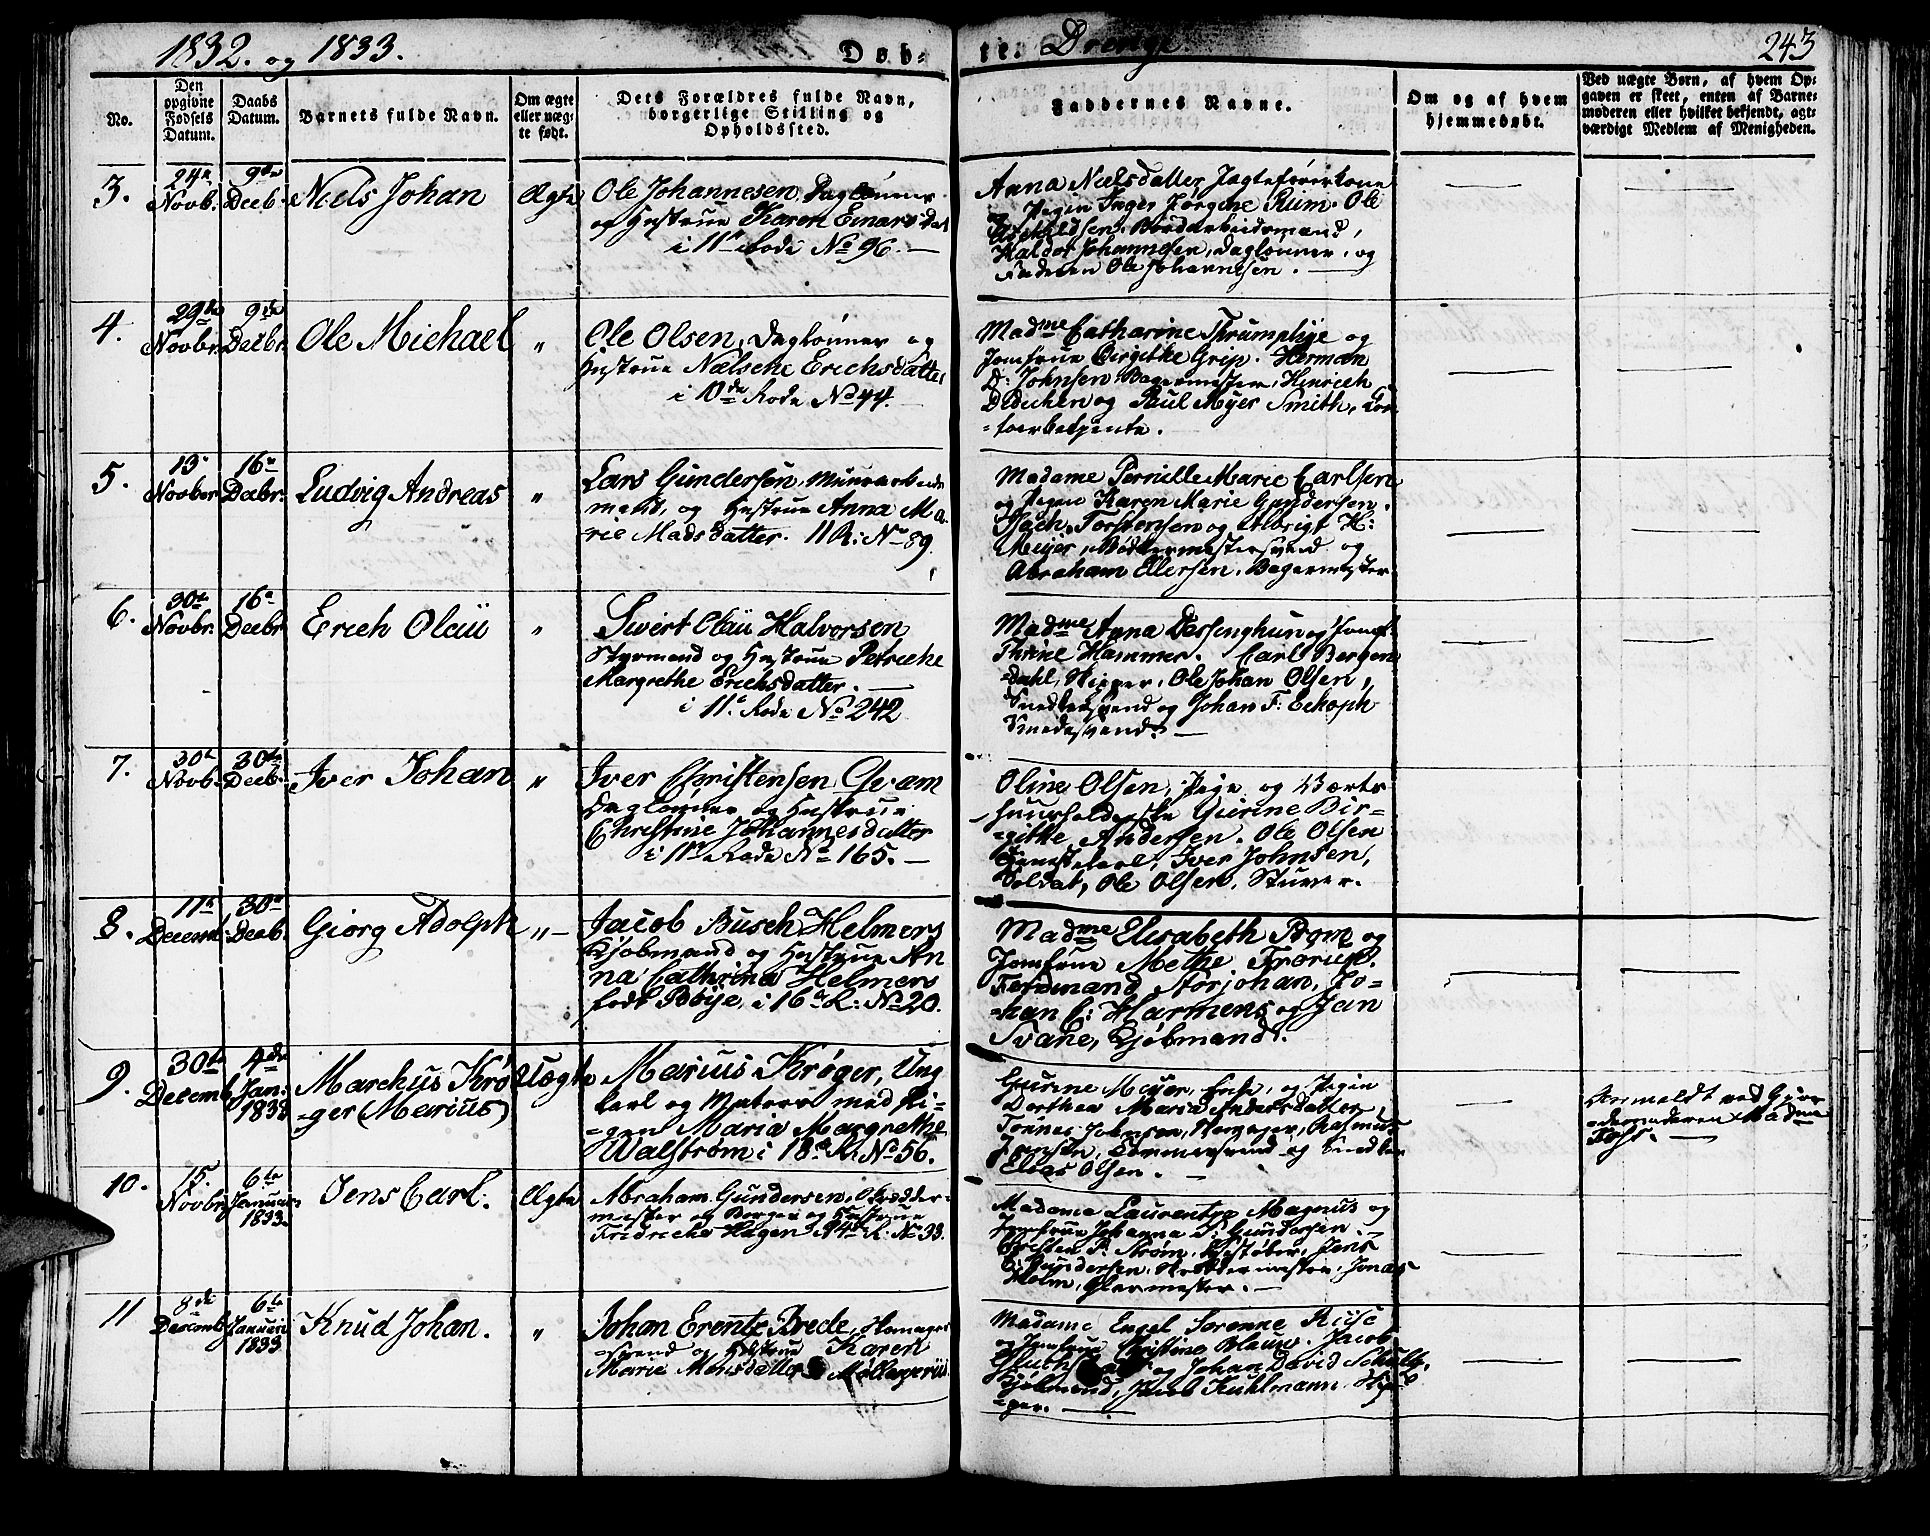 1832. og 1833.
Døb-
te. Drenge
243
No.
Den opgivne Fødsels Datum.
Daabs Datum.
Barnets fulde Navn.
Om ægte eller uægte født.
Dets Forældres fulde Navn, borgerlige Stilling og Opholdssted.
Faddernes Navne.
Om og af hvem hjemmedøbt.
Ved uægte Børn, af hvem Opgaven er skeet, enten af Barnemoderen eller hvilket bekjendt, agtværdigt Medlem af Menigheden.
3.
24de Novb.
9de Decb.
Niels Johan
Ægte
Ole Johannesen, Daglønner
og Hustrue Karen Einarsdat
i 11te Rode No 96. —
Anna Nielsdatter Jagteførerkone
Pigen Inger Jørgine Rum. Ole
Bordarbeidsmand,
Haldor Johannesen, Dagløner, og
Faderen Ole Johannesen. —
4.
29de Novbr.
9de Decbr.
Ole Michael
"
Ole Olsen, Daglønner og
Hustrue Nielsche Erichsdatter
i 10de Rode No 44.
Madme Catharine Thrumphye og
Jomfrue Birgithe Grip. Herman
D. Johnsen Bagermester, Hinrich
Dedichen og Paul Myer Smith, Con-
-toirbetjente.
5.
13. Novber
16de Decbr.
Ludvig Andreas
"
Lars Gundersen, Muurarbeids
mand, og Hustrue Anna Ma-
rie Madsdatter. 11 R: No 89.
Madame Pernille Marie Carlsen
og Pigen Karen Marie Gundersen.
Zach. Torstensen og Albrigt H:
Meyer, Bødkermestersvend og
Abraham Ellersen, Bagermester.
6.
30te Novbr.
16de Decbr.
Erich Olaii
"
Sivert Olaii Halvorsen
Styrmand og Hustrue Petriche
Margrethe Erichsdatter. —
i 11te Rode No 242
Madme Anna Dessinghun og Jomf:
Thrine Hammer. Carl Bergen
-dahl, Skipper, Ole Johan Olsen,
Snedkersvend og Johan F. Eckoph
Smedesvend. —
7.
30te Novb.
30te Decb.
Iver Johan
"
Iver Christensen Qvam
Dagløner og Hustrue
Christine Johannesdatter
i 11te Rode No 165. —
Oline Olsen, Pige og Værts-
huusholderske Gurine Bir-
-gitte Andersen. Ole Olsen
Tjenestekarl, Iver Johnsen,
Soldat, Ole Olsen, Stuver.
8.
11te Decemb.
30te Decb.
Giørg Adolph
"—
Jacob Busch Helmers
Kjøbmand og Hustrue An-
na Cathrina Helmers
født Bøye, i 16de R: No 20.
Madme Elisabeth Prom og
Jomfrue Methe Frøriep.
Ferdinand Størjohan, Jo-
-han C: Harmens og Jan
Svane, Kjøbmænd.
9.
30te Decemb.
4de Jan: 1833
Marchus Krø-
-ger (Marius)
Uægte
Marius Krøger, Ung
karl og Matros med Pi-
-gen Maria Margrethe
Walstrøm i 18de R. No 56.
Gurine Meyer, Enke, og Pigen
Dorthea Maria Andersdatter,
Tønnes Johnsen, Rasmus
Tømmersvend og Snedker
Elias Olsen. —
Anmeldt ved Gjor
-demoderen Madme
10.
15. Novbr.
6te Januar 1833.
Jens Carl.
Ægte
Abraham Gundersen, Skrædder-
mester og Borger og Hustrue
Fridriche Hagen 24de R: No 33.
Madame Laurentze Magnus og
Jomfrue Johanna S. Gundersen
Christen P. Strøm, Gjestgiver, Jens
C. Gundersen, Skræddermester, Jonas
Holm, Glarmester. —
11
8de Decemb.
6te Januari 1833
Knud Johan.
"
Johan Erentz Brede,
-svend og Hustrue Karen
Marie Monsdatter Møllengriis
Madame Engel Serenne Riise
og Jomfrue Christine Blauw. Jacob
og Johan David Schultz,
Kjøbmænd, Jacob Kuhlmann Skip-
-per. —